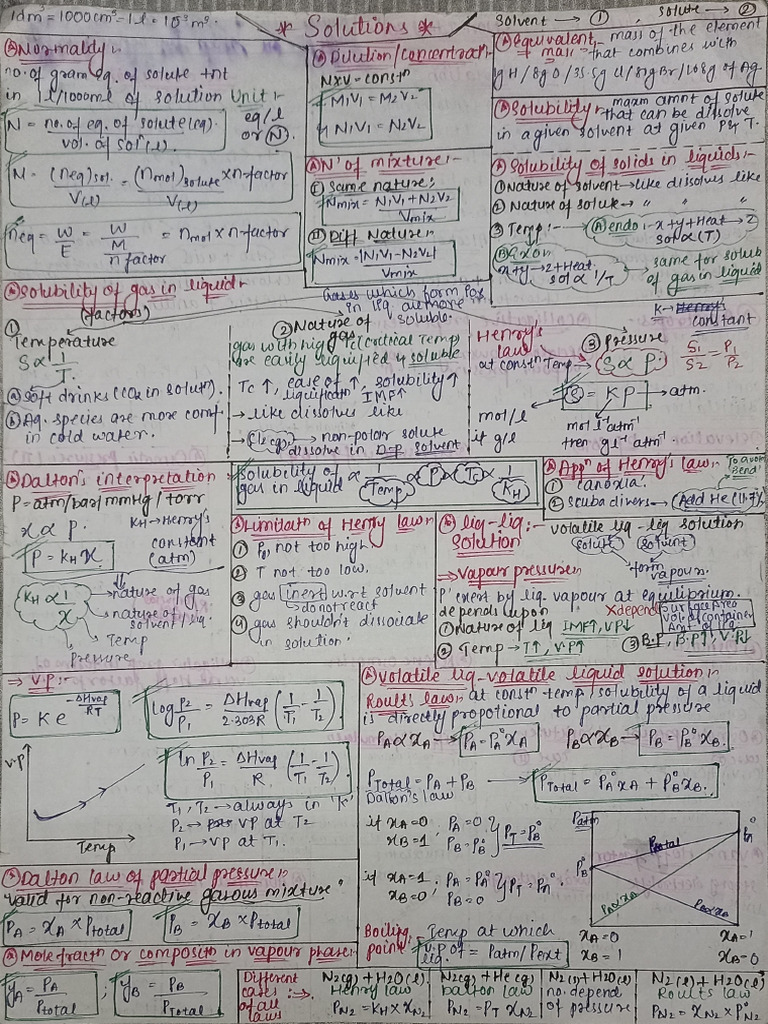 1dm³ = 1000cm³ = 1l = 10⁻³m³.
* Solutions *
Solvent → ① , solute → ②
Normality :-
no. of gram eq. of solute
in 1l/1000ml of solution Unit :-
N = no. of eq. of solute (eq.) / vol. of solⁿ (l.)
eq/l
or N.
N = (neq)sol. / V(l) = (nmol)solute × n-factor / V(l)
neq = W/E = W / (M / n factor) = nmol × n-factor
Dilution/concentratⁿ
N×V = constⁿ
M₁V₁ = M₂V₂
N₁V₁ = N₂V₂
Nʳ of mixture :-
① same nature :
Nmix = N₁V₁ + N₂V₂ / Vmix
② Diff Nature :-
Nmix = |N₁V₁ - N₂V₂| / Vmix
Equivalent mass :- mass of the element
that combines with
1g H / 8g O / 35.5g Cl / 81g Br / 108g of Ag.
Solubility :- maxm amnt of solute
that can be dissolve
in a given solvent at given P & T.
Solubility of solids in liquids :-
① Nature of solvent → like dissolves like
② Nature of solute → " " "
③ Temp :-
Ⓐ endo :- x + y + Heat → Z
sol ∝ (T)
Ⓑ Exo :-
x + y → z + Heat.
sol ∝ 1/T
same for solub
of gas in liquid
Solubility of gas in liquid :-
(factors)
① Temperature
S ∝ 1/T.
ⓐ soft drinks (CO₂ in solutⁿ).
ⓑ Aq. species are more comf
in cold water.
Gases which form
in liq are more
soluble.
② Nature of gas
gas with high Tc (Critical Temp)
are easily liquified & soluble
Tc ↑, ease of liquificatⁿ ↑, solubility ↑
IMF ↑
→ like dissolves like
→ non-polar solute
dissolve in solvent
Henry's
law
at constⁿ Temp
③ Pressure
S ∝ P.
S₁/S₂ = P₁/P₂
K → Henry's
constant
S = KP → atm.
mol/l
if g/l
mol l⁻¹ atm⁻¹
then g l⁻¹ atm⁻¹.
Dalton's interpretation
P = atm/bar/mmHg/torr
x ∝ P.
P = KH x.
KH → Henry's
constant
(atm)
KH ∝ 1/x
→ nature of gas
→ nature of
solvent/liq.
Temp
Pressure
Solubility of
gas in liquid ∝ 1/Temp ∝ P ∝ Tc ∝ 1/KH
Appⁿ of Henry's law :-
① anoxia.
② scuba divers → Add He (11.7%)
Limitatⁿ of Henry law :-
① P, not too high.
② T not too low.
③ gas inert w.r.t solvent
do not react
④ gas shouldn't dissociate
in solution.
liq-liq :- volatile liq-liq solution
solution
solute solvent
form
vapour.
⇒ Vapour pressure :-
P exert by liq. vapour at equilibrium.
depends upon
X depend
surface Area
vol. of container
Amt of liq
① Nature of liq IMF↑, VP↓
② Temp → T↑, V.P↑
③ B.P, B.P↑, V.P↓
⇒ V.P :-
P = K e^(-ΔHvap/RT)
log P₂/P₁ = ΔHvap/2.303R (1/T₁ - 1/T₂)
ln P₂/P₁ = ΔHvap/R (1/T₁ - 1/T₂)
T₁, T₂ → always in 'K'
P₂ → VP at T₂
P₁ → VP at T₁.
V.P
Temp
Volatile liq-volatile liquid solution :-
Roults law :- at constⁿ temp, solubility of a liquid
is directly propotional to partial pressure
PA ∝ xA → PA = P°A xA PB ∝ xB → PB = P°B xB.
PTotal = PA + PB → PTotal = P°A xA + P°B xB.
Dalton's law
if xA = 0 , PA = 0.
xB = 1 , PB = P°B } PT = P°B
if xA = 1 ; PA = P°A
xB = 0 , PB = 0 } PT = P°A.
Patm
P°B
P°A
Ptotal
PA ∝ xA
PB ∝ xB
xA = 0
xB = 1
xA = 1
xB = 0
Boiling
point
Temp at which
V.P of liq. = Patm/Pext
Dalton law of partial pressure :-
"valid for non-reactive gasous mixture"
PA = xA × Ptotal
PB = xB × Ptotal
Mole fractⁿ or compositⁿ in vapour phase :-
yA = PA / Ptotal ; yB = PB / PTotal
Different
cases
of all
laws
N₂(g) + H₂O(l)
Henry law
PN₂ = KH × xN₂
N₂(g) + He(g)
Dalton law
PN₂ = PT xN₂
N₂(s) + H₂O(l)
no. depend
of pressure
N₂(l) + H₂O(l)
Roults law
PN₂ = xN₂ × P°N₂